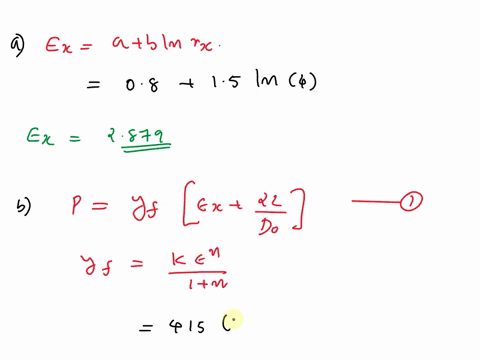 a) Ex = a+b ln rx.
= 0.8 + 1.5 ln (4)
Ex = 2.879
b) P = yf [Ex + 2L/D0] —— ①
yf = K ϵ^n / 1+n
= 415 (